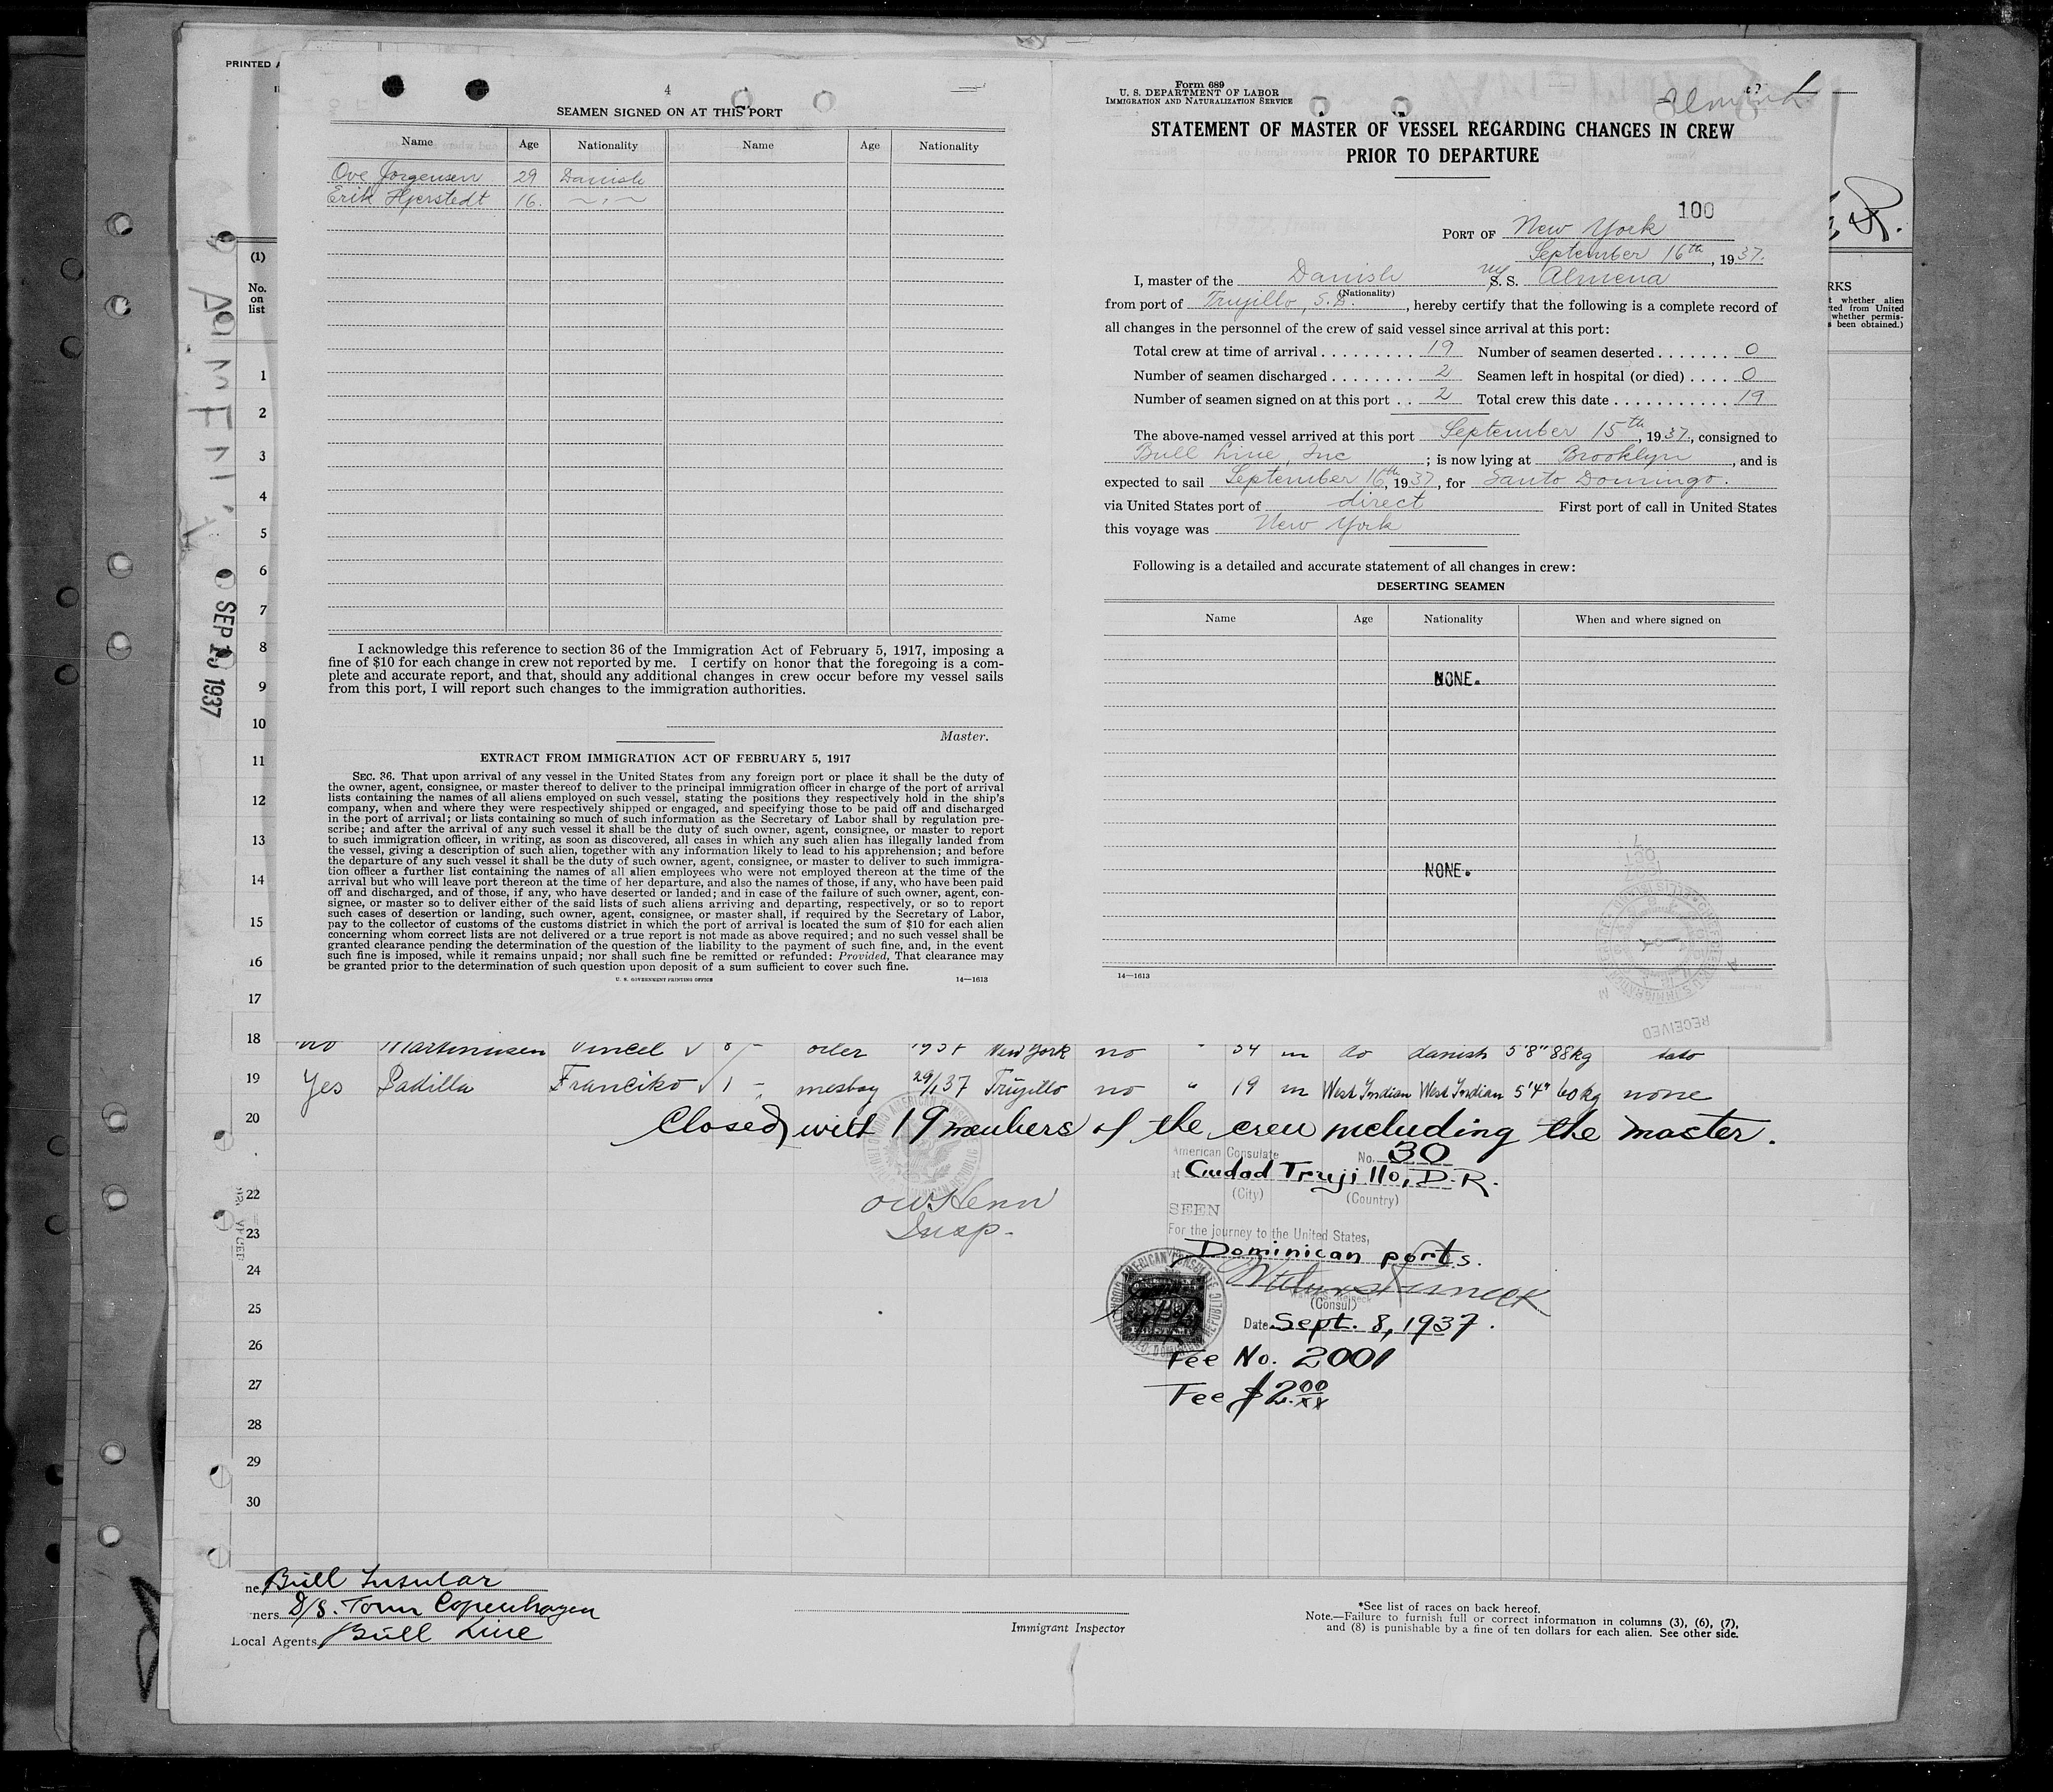 PRINTED
4
SEAMEN SIGNED ON AT THIS PORT
Name Age Nationality Name Age Nationality
Ove Jorgensen 29 Danish
Erik Hjerstedt 16. ~ , ~
I acknowledge this reference to section 36 of the Immigration Act of February 5, 1917, imposing a
fine of $10 for each change in crew not reported by me. I certify on honor that the foregoing is a com-
plete and accurate report, and that, should any additional changes in crew occur before my vessel sails
from this port, I will report such changes to the immigration authorities.
Master.
EXTRACT FROM IMMIGRATION ACT OF FEBRUARY 5, 1917
SEC. 36. That upon arrival of any vessel in the United States from any foreign port or place it shall be the duty of
the owner, agent, consignee, or master thereof to deliver to the principal immigration officer in charge of the port of arrival
lists containing the names of all aliens employed on such vessel, stating the positions they respectively hold in the ship's
company, when and where they were respectively shipped or engaged, and specifying those to be paid off and discharged
in the port of arrival; or lists containing so much of such information as the Secretary of Labor shall by regulation pre-
scribe; and after the arrival of any such vessel it shall be the duty of such owner, agent, consignee, or master to report
to such immigration officer, in writing, as soon as discovered, all cases in which any such alien has illegally landed from
the vessel, giving a description of such alien, together with any information likely to lead to his apprehension; and before
the departure of any such vessel it shall be the duty of such owner, agent, consignee, or master to deliver to such immigra-
tion officer a further list containing the names of all alien employees who were not employed thereon at the time of the
arrival but who will leave port thereon at the time of her departure, and also the names of those, if any, who have been paid
off and discharged, and of those, if any, who have deserted or landed; and in case of the failure of such owner, agent, con-
signee, or master so to deliver either of the said lists of such aliens arriving and departing, respectively, or so to report
such cases of desertion or landing, such owner, agent, consignee, or master shall, if required by the Secretary of Labor,
pay to the collector of customs of the customs district in which the port of arrival is located the sum of $10 for each alien
concerning whom correct lists are not delivered or a true report is not made as above required; and no such vessel shall be
granted clearance pending the determination of the question of the liability to the payment of such fine, and, in the event
such fine is imposed, while it remains unpaid; nor shall such fine be remitted or refunded: Provided, That clearance may
be granted prior to the determination of such question upon deposit of a sum sufficient to cover such fine.
U. S. GOVERNMENT PRINTING OFFICE 14—1613
Form 689
U. S. DEPARTMENT OF LABOR
IMMIGRATION AND NATURALIZATION SERVICE
STATEMENT OF MASTER OF VESSEL REGARDING CHANGES IN CREW
PRIOR TO DEPARTURE
100
PORT OF New York
September 16th, 1937.
I, master of the Danish S. S. Almena
(Nationality)
from port of Trujillo, S.D., hereby certify that the following is a complete record of
all changes in the personnel of the crew of said vessel since arrival at this port:
Total crew at time of arrival 19 Number of seamen deserted 0
Number of seamen discharged 2 Seamen left in hospital (or died) 0
Number of seamen signed on at this port 2 Total crew this date 19
The above-named vessel arrived at this port September 15th, 1937, consigned to
Bull Line, Inc; is now lying at Brooklyn, and is
expected to sail September 16th, 1937, for Santo Domingo.
via United States port of direct First port of call in United States
this voyage was New York
Following is a detailed and accurate statement of all changes in crew:
DESERTING SEAMEN
Name Age Nationality When and where signed on
NONE.
NONE.
14—1613
RECEIVED
RKS
whether alien
ted from United
whether permis-
s been obtained.)
(1)
No.
on
list
1
2
3
4
5
6
7
8
9
10
11
12
13
14
15
16
17
SEP 15 1937
18 no Martinusen Vincel oiler New York no " 34 m do danish 5'8" 88kg
19 Yes Padilla Franciko 1 - mesboy 29/1 37 Trujillo no " 19 m West Indian West Indian 5'4" 60kg none
20 Closed with 19 members of the crew including the master.
American Consulate No. 30
at Ciudad Trujillo, D.R.
(City) (Country)
SEEN
For the journey to the United States,
Dominican ports.
(Consul)
Date Sept. 8, 1937.
Fee No. 2001
Fee $2.00
Insp.
22
23
24
25
26
27
28
29
30
ne, Bull Insular
ners D/S. Torm Copenhagen
Local Agents, Bull Line
Immigrant Inspector
*See list of races on back hereof.
Note.—Failure to furnish full or correct information in columns (3), (6), (7),
and (8) is punishable by a fine of ten dollars for each alien. See other side.